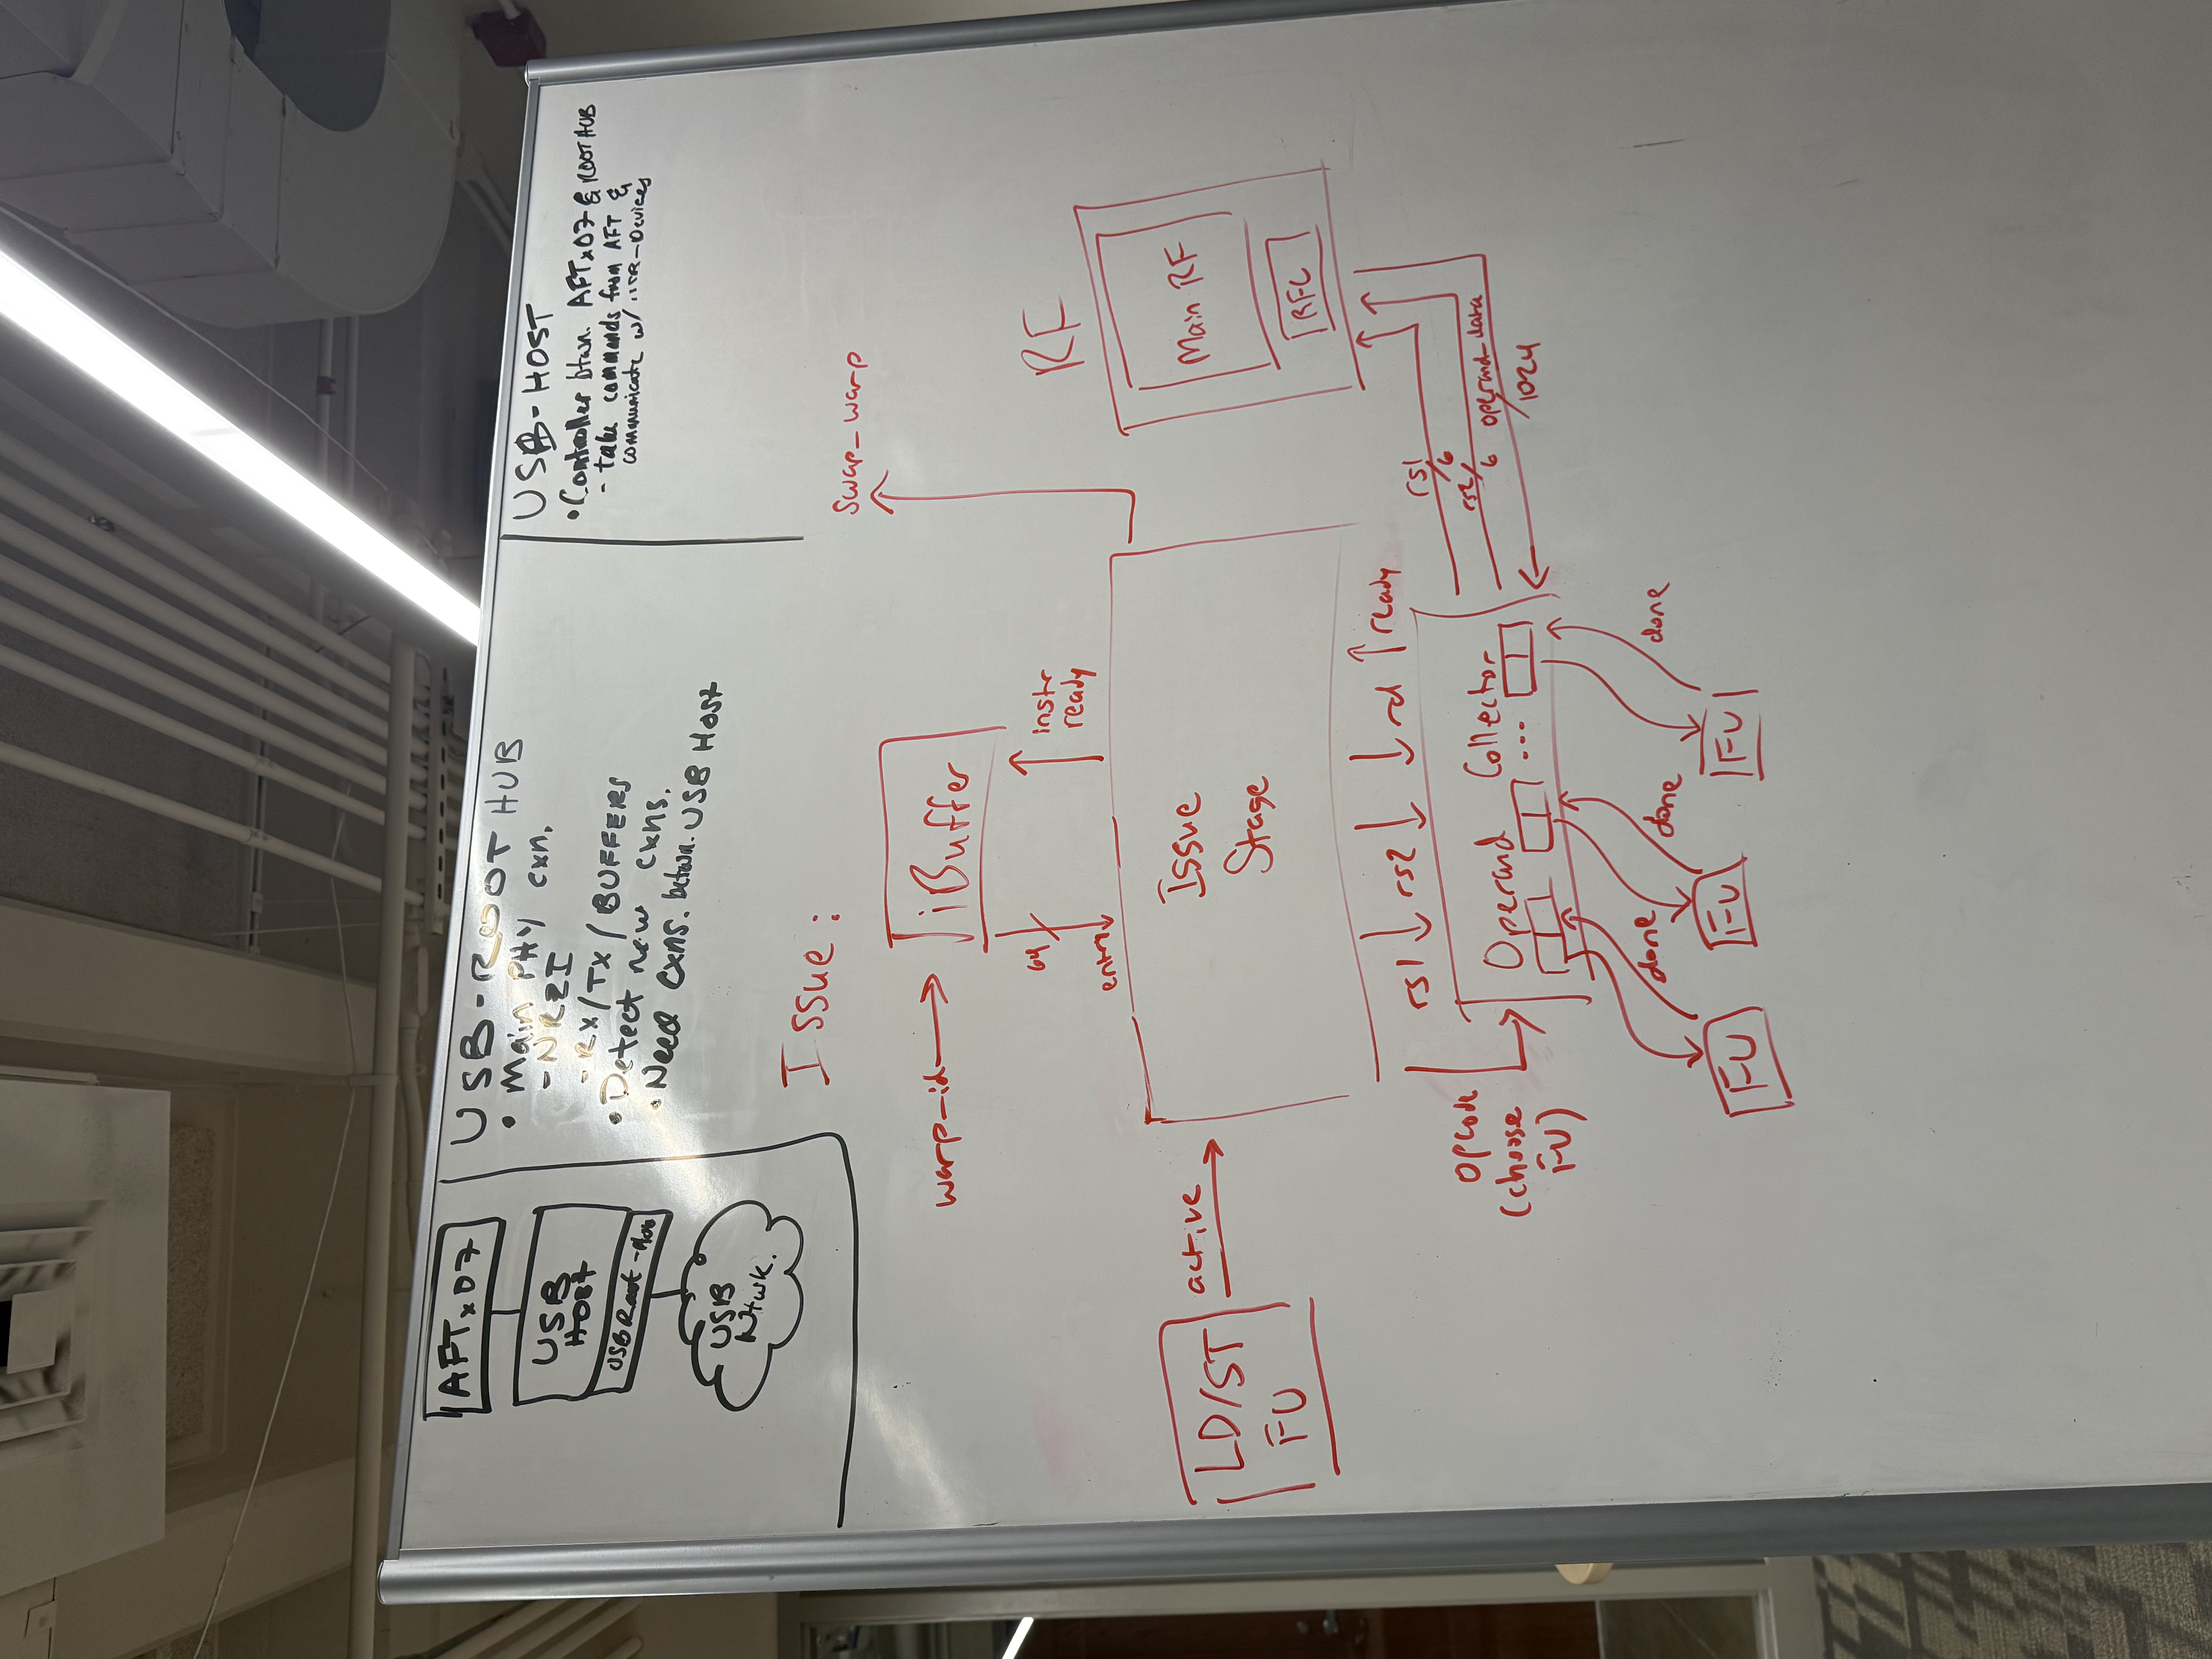 AFTx07
USB
HOST
USB Root-Hub
USB
Ntwk.
USB-ROOT HUB
• Main PHY cxn.
- NRZI
- RX/TX/BUFFERS
• Detect new cxns.
• Need cxns. betwn. USB Host
USB-HOST
• Controller btwn. AFTx07 & ROOT HUB
- take commands from AFT &
communicate w/ USB-Devices
Issue:
swap_warp
warp_id
iBuffer
64
entry
instr
ready
RF
Main RF
RFC
LD/ST
FU
active
Issue
Stage
rs1
rs2
rd
ready
opcode
(choose
FU)
Operand Collector
...
rs1
6
rs2
6
operand_data
1024
done
done
done
FU
FU
FU